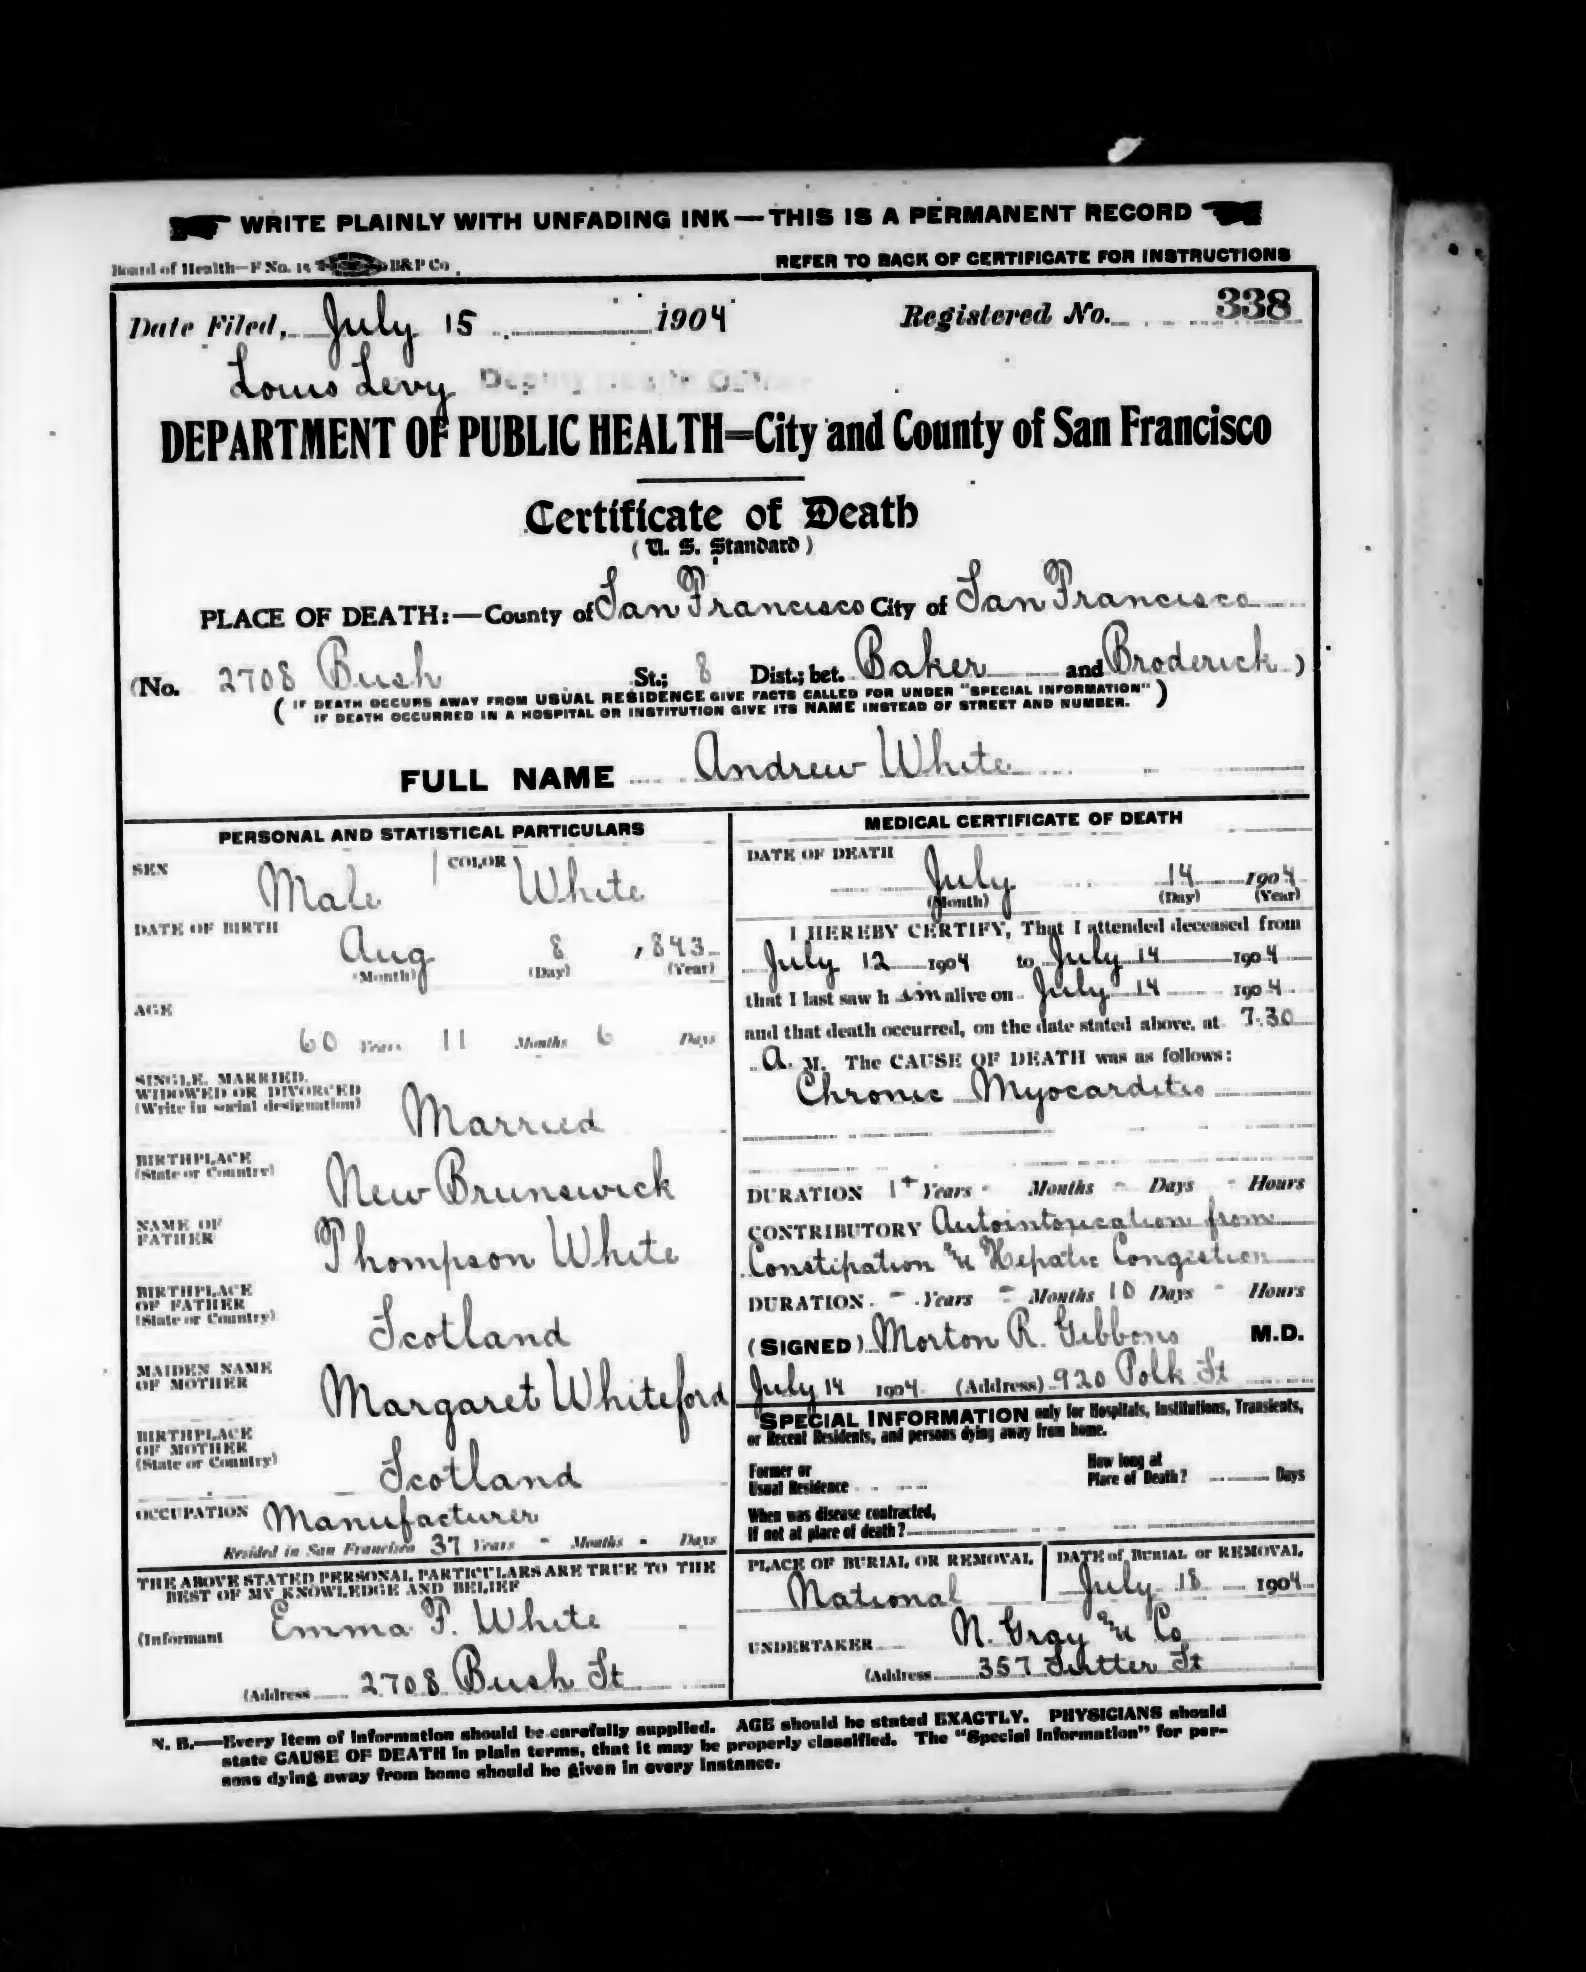 WRITE PLAINLY WITH UNFADING INK—THIS IS A PERMANENT RECORD
Board of Health—F No. 15 B&P Co
REFER TO BACK OF CERTIFICATE FOR INSTRUCTIONS
Date Filed, July 15 1904 Registered No. 338
Louis Levy Deputy Health Officer
DEPARTMENT OF PUBLIC HEALTH=City and County of San Francisco
Certificate of Death
(U. S. Standard)
PLACE OF DEATH:—County of San Francisco City of San Francisco
(No. 2708 Bush St.; 8 Dist.; bet. Baker and Broderick)
(IF DEATH OCCURS AWAY FROM USUAL RESIDENCE GIVE FACTS CALLED FOR UNDER "SPECIAL INFORMATION"
IF DEATH OCCURRED IN A HOSPITAL OR INSTITUTION GIVE ITS NAME INSTEAD OF STREET AND NUMBER.)
FULL NAME Andrew White
PERSONAL AND STATISTICAL PARTICULARS
SEX Male COLOR White
DATE OF BIRTH
Aug 8 ,843
(Month) (Day) (Year)
AGE
60 Years 11 Months 6 Days
SINGLE, MARRIED,
WIDOWED OR DIVORCED
(Write in social designation) Married
BIRTHPLACE
(State or Country) New Brunswick
NAME OF
FATHER Thompson White
BIRTHPLACE
OF FATHER
(State or Country) Scotland
MAIDEN NAME
OF MOTHER Margaret Whiteford
BIRTHPLACE
OF MOTHER
(State or Country) Scotland
OCCUPATION Manufacturer
Resided in San Francisco 37 Years - Months - Days
THE ABOVE STATED PERSONAL PARTICULARS ARE TRUE TO THE
BEST OF MY KNOWLEDGE AND BELIEF
(Informant Emma F. White
(Address 2708 Bush St
MEDICAL CERTIFICATE OF DEATH
DATE OF DEATH
July 14 1904
(Month) (Day) (Year)
I HEREBY CERTIFY, That I attended deceased from
July 12 1904 to July 14 1904
that I last saw h im alive on July 14 1904
and that death occurred, on the date stated above, at 7.30
A. M. The CAUSE OF DEATH was as follows:
Chronic Myocarditis
DURATION 1+ Years - Months - Days - Hours
CONTRIBUTORY Autointoxication from
Constipation & Hepatic Congestion
DURATION - Years - Months 10 Days - Hours
(SIGNED) Morton R. Gibbons M.D.
July 14 1904 (Address) 920 Polk St
SPECIAL INFORMATION only for Hospitals, Institutions, Transients,
or Recent Residents, and persons dying away from home.
Former or
Usual Residence
How long at
Place of Death? Days
When was disease contracted,
If not at place of death?
PLACE OF BURIAL OR REMOVAL
National
DATE of BURIAL or REMOVAL
July 18 1904
UNDERTAKER N. Gray & Co
(Address 357 Sutter St
N. B.—Every item of information should be carefully supplied. AGE should be stated EXACTLY. PHYSICIANS should
state CAUSE OF DEATH in plain terms, that it may be properly classified. The "Special Information" for per-
sons dying away from home should be given in every instance.